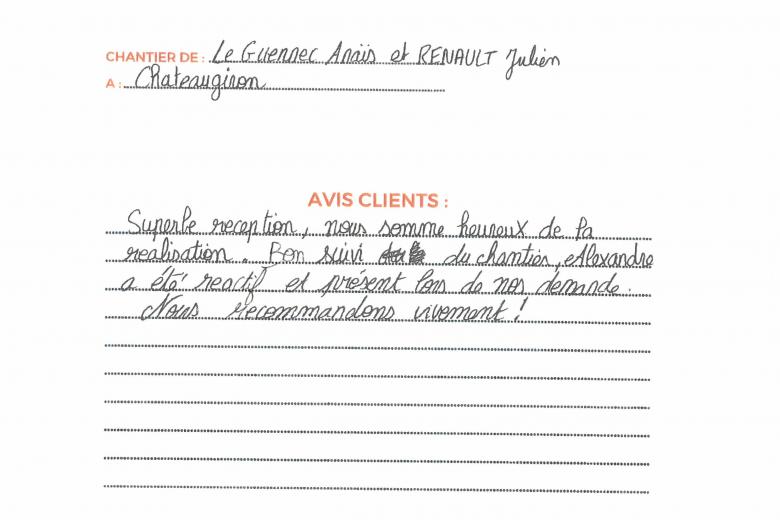 CHANTIER DE : Le Guennec Anaïs et RENAULT Julien
A : Chateaugiron
AVIS CLIENTS :
Superbe reception, nous somme heureux de la
realisation. Bon suivi du chantier, Alexandre
a été reactif et présent lors de nos demande.
Nous recommandons vivement !